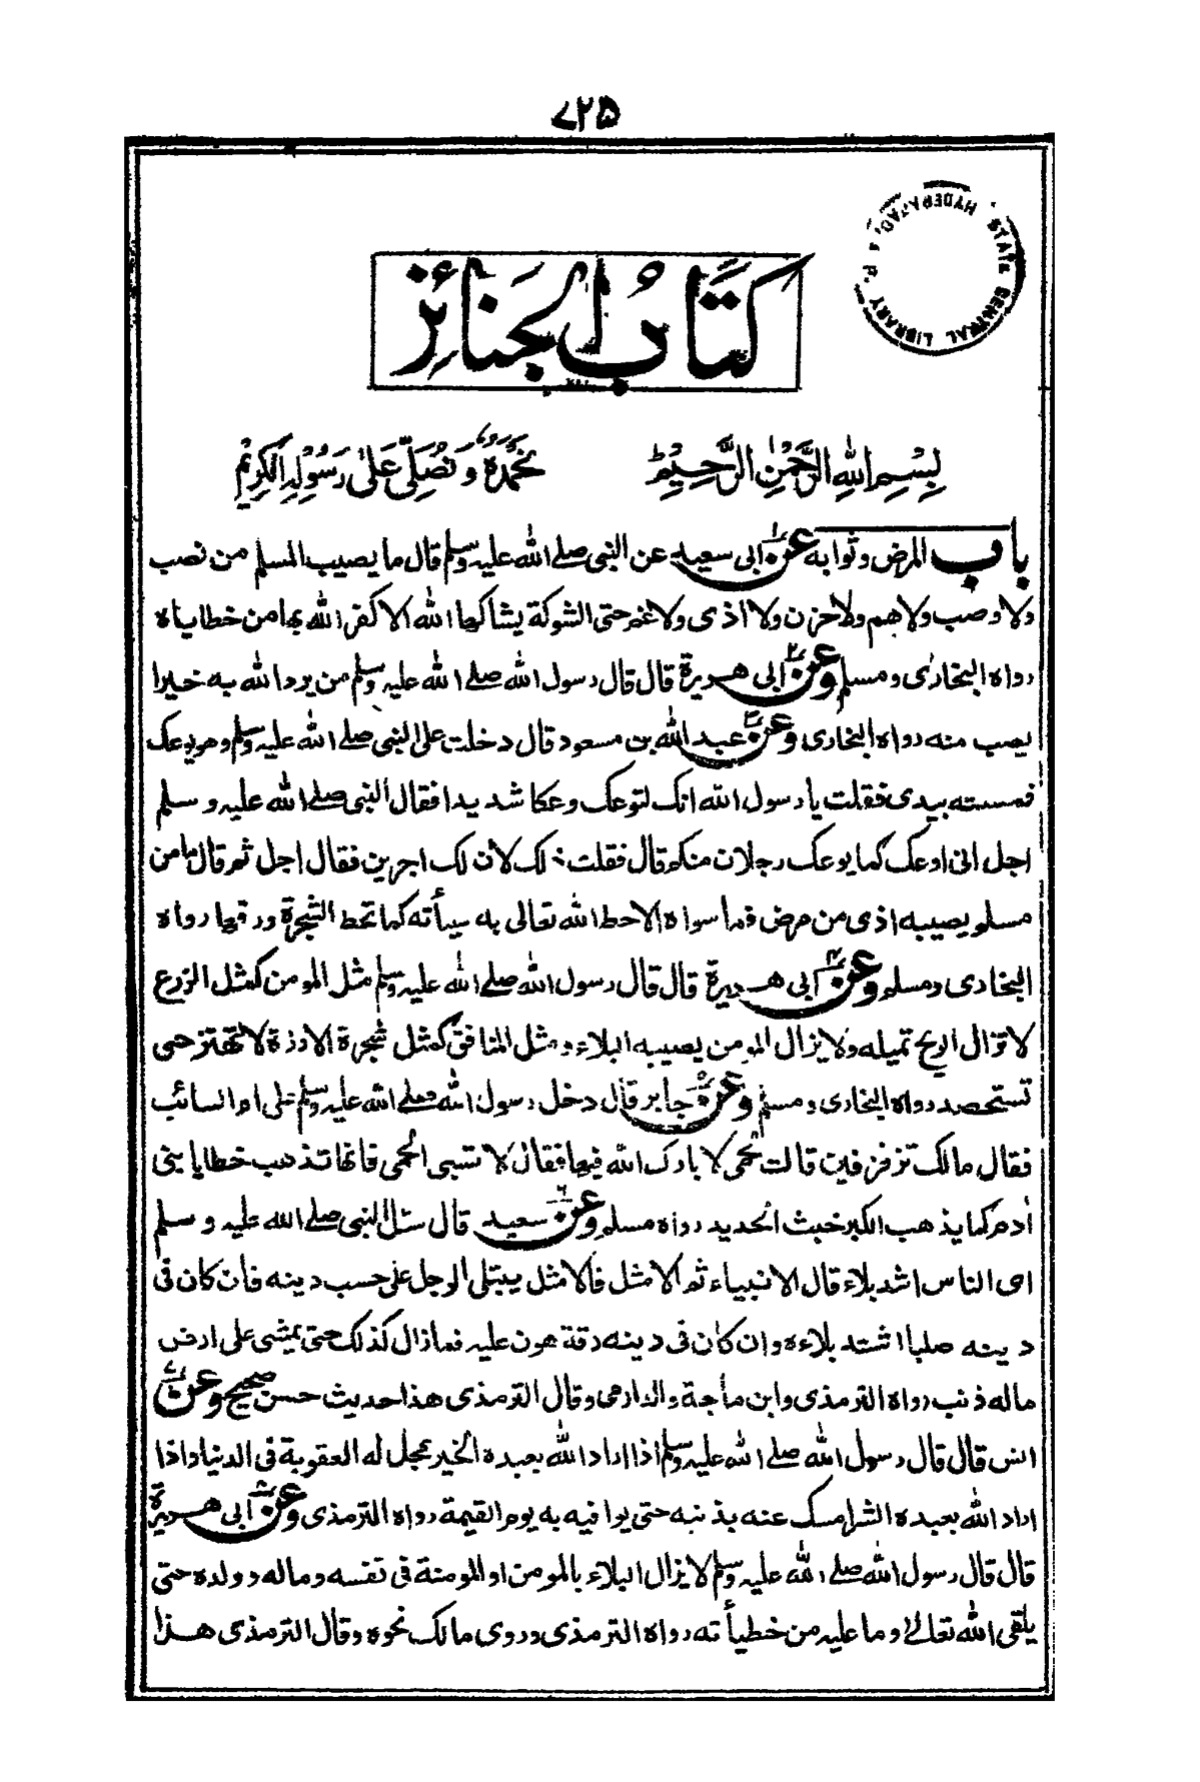 ۷۲۵
HYDERABAD, A. P. STATE CENTRAL LIBRARY
كتابُ الجنائز
بِسْمِ اللهِ الرَّحْمٰنِ الرَّحِيْمِ نَحْمَدُهٗ وَنُصَلِّيْ عَلٰى رَسُوْلِهِ الْكَرِيْمِ
باب المرض وثوابه عن ابى سعيد عن النبى صلے الله عليه وسلم قال ما يصيب المسلم من نصب
ولا وصب ولا هم ولا حزن ولا اذى ولا غم حتى الشوكة يشاكها الله الا كفر الله بها من خطاياه
رواه البخارى ومسلم وعن ابى هريرة قال قال رسول الله صلے الله عليه وسلم من يرد الله به خيرا
يصب منه رواه البخارى وعن عبد الله بن مسعود قال دخلت على النبى صلے الله عليه وسلم وهو يوعك
فمسسته بيدى فقلت يا رسول الله انك لتوعك وعكا شديدا فقال النبى صلے الله عليه وسلم
اجل انى اوعك كما يوعك رجلان منكم قال فقلت ذلك لان لك اجرين فقال اجل ثم قال ما من
مسلم يصيبه اذى من مرض فما سواه الا حط الله تعالى به سيأته كما تحط الشجرة ورقها رواه
البخارى ومسلم وعن ابى هريرة قال قال رسول الله صلے الله عليه وسلم مثل المومن كمثل الزرع
لا تزال الريح تميله ولا يزال المومن يصيبه البلاء ومثل المنافق كمثل شجرة الارزة لا تهتز حتى
تستحصد رواه البخارى ومسلم وعن جابر قال دخل رسول الله صلے الله عليه وسلم على ام السائب
فقال مالك تزفزفين قالت الحمى لا بارك الله فيها فقال لا تسبى الحمى فانها تذهب خطايا بنى
أدم كما يذهب الكير خبث الحديد رواه مسلم وعن سعيد قال سئل النبى صلے الله عليه وسلم
اى الناس اشد بلاء قال الانبياء ثم الامثل فالامثل يبتلى الرجل على حسب دينه فان كان فى
دينه صلبا اشتد بلاءه وان كان فى دينه دقة هون عليه فمازال كذلك حتى يمشى على ارض
ماله ذنب رواه الترمذى وابن ماجة والدارمى وقال الترمذى هذا حديث حسن صحيح وعن
انس قال قال رسول الله صلے الله عليه وسلم اذا اراد الله بعبده الخير عجل له العقوبة فى الدنيا واذا
اراد الله بعبده الشر امسك عنه بذنبه حتى يوافيه به يوم القيمة رواه الترمذى وعن ابى هريرة
قال قال رسول الله صلے الله عليه وسلم لا يزال البلاء بالمومن او المومنة فى نفسه وماله وولده حتى
يلقى الله تعالے وما عليه من خطيأته رواه الترمذى وروى مالك نحوه وقال الترمذى هذا